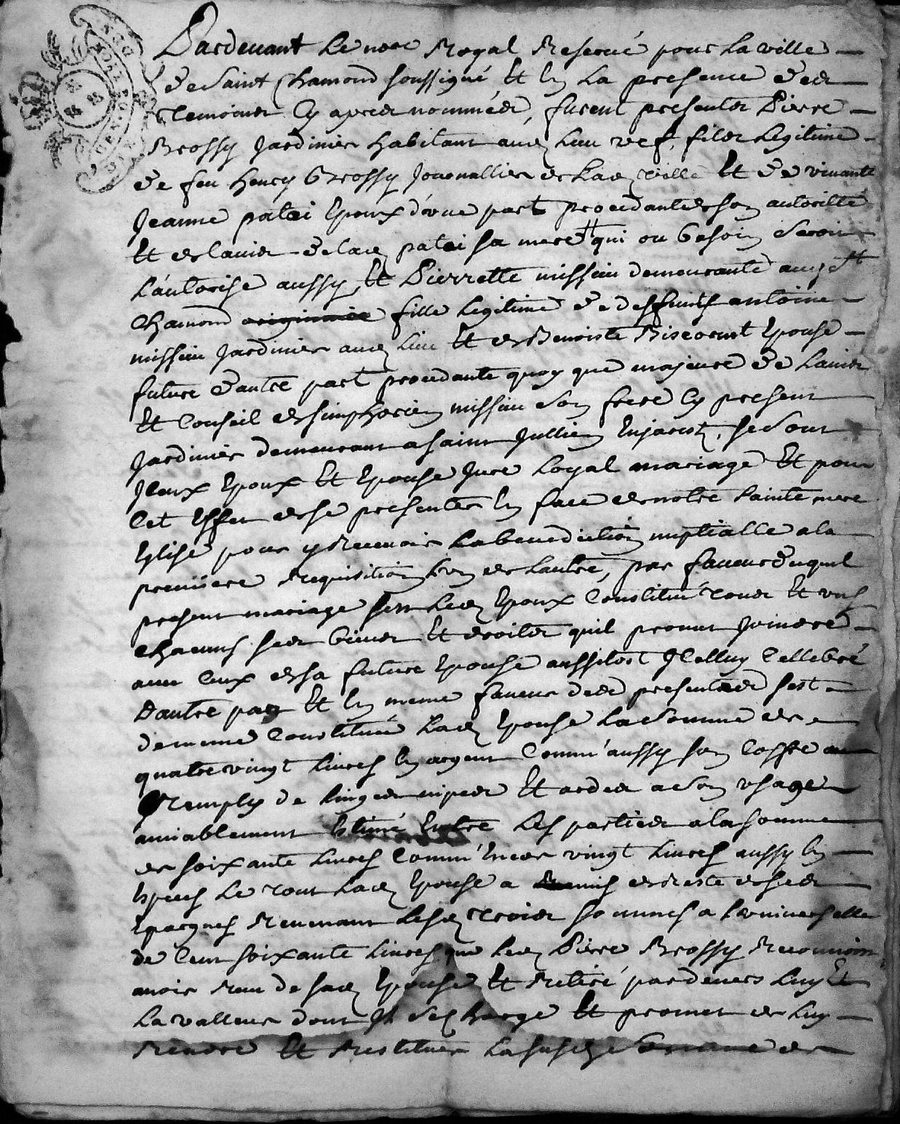 Pardevant Le nore Royal Reservé pour La ville
de Saint Chamond soussigné Et En La presence des
temoins Cy apres nommés, furent presents Pierre
Brossy Jardinier habitant aud Lieu filz Legitime
de feu henry Brossy Journallier de Lad ville Et de vivante
Jeanne patei Epoux d'une part procedant de son autorité
Et de lavis de lad patei sa mere qui ou besoin seroit
L'autorise aussy, Et Pierrette missieu demeurante aud St
Chamond fille Legitime de deffunts antoine
missieu Jardinier aud Lieu Et de Benoiste Epouse
future d'autre part procedante quoy que majeure de Lavis
Et Conseil de simphorien missieu son frere Cy present
Jardinier demeurant a saint Jullien Enjarest, se sont
Jceux Epoux Et Epouse Juré Loyal mariage Et pour
Cet Effet de se presenter En face de notre sainte mere
Eglise pour y Recevoir La benediction nuptialle a la
premiere Requisition L'un de Lautre, par faveur duquel
present mariage sest Led Epoux Constitué tous Et uns
chacuns ses biens Et droits qu'il promet Joindre
avec Ceux de sa future Epouse aussitost Jcelluy Cellebré
D'autre part Et En meme faveur des presentes s'est
de meme Constitué Lad Epouse La somme de
quatre vingt Livres En argent Comm'aussy son Coffre
Remply de Linges nipes Et ardes a son usage
amiablement Estimé Entre Les parties a la somme
de soixante Livres Comm'Encor vingt Livres aussy En
Especes Le tout Lad Epouse a de reste de ses
Epargnes Revenant Lesd trois sommes a L'universelle
de Cent soixante Livres que Led Pierre Brossy Reconnoit
avoir Reçu de sad Epouse Et Retiré pardevers Luy Et
La valleur dont Jl se Charge Et promet de Luy
Rendre Et Restituer La susd somme de